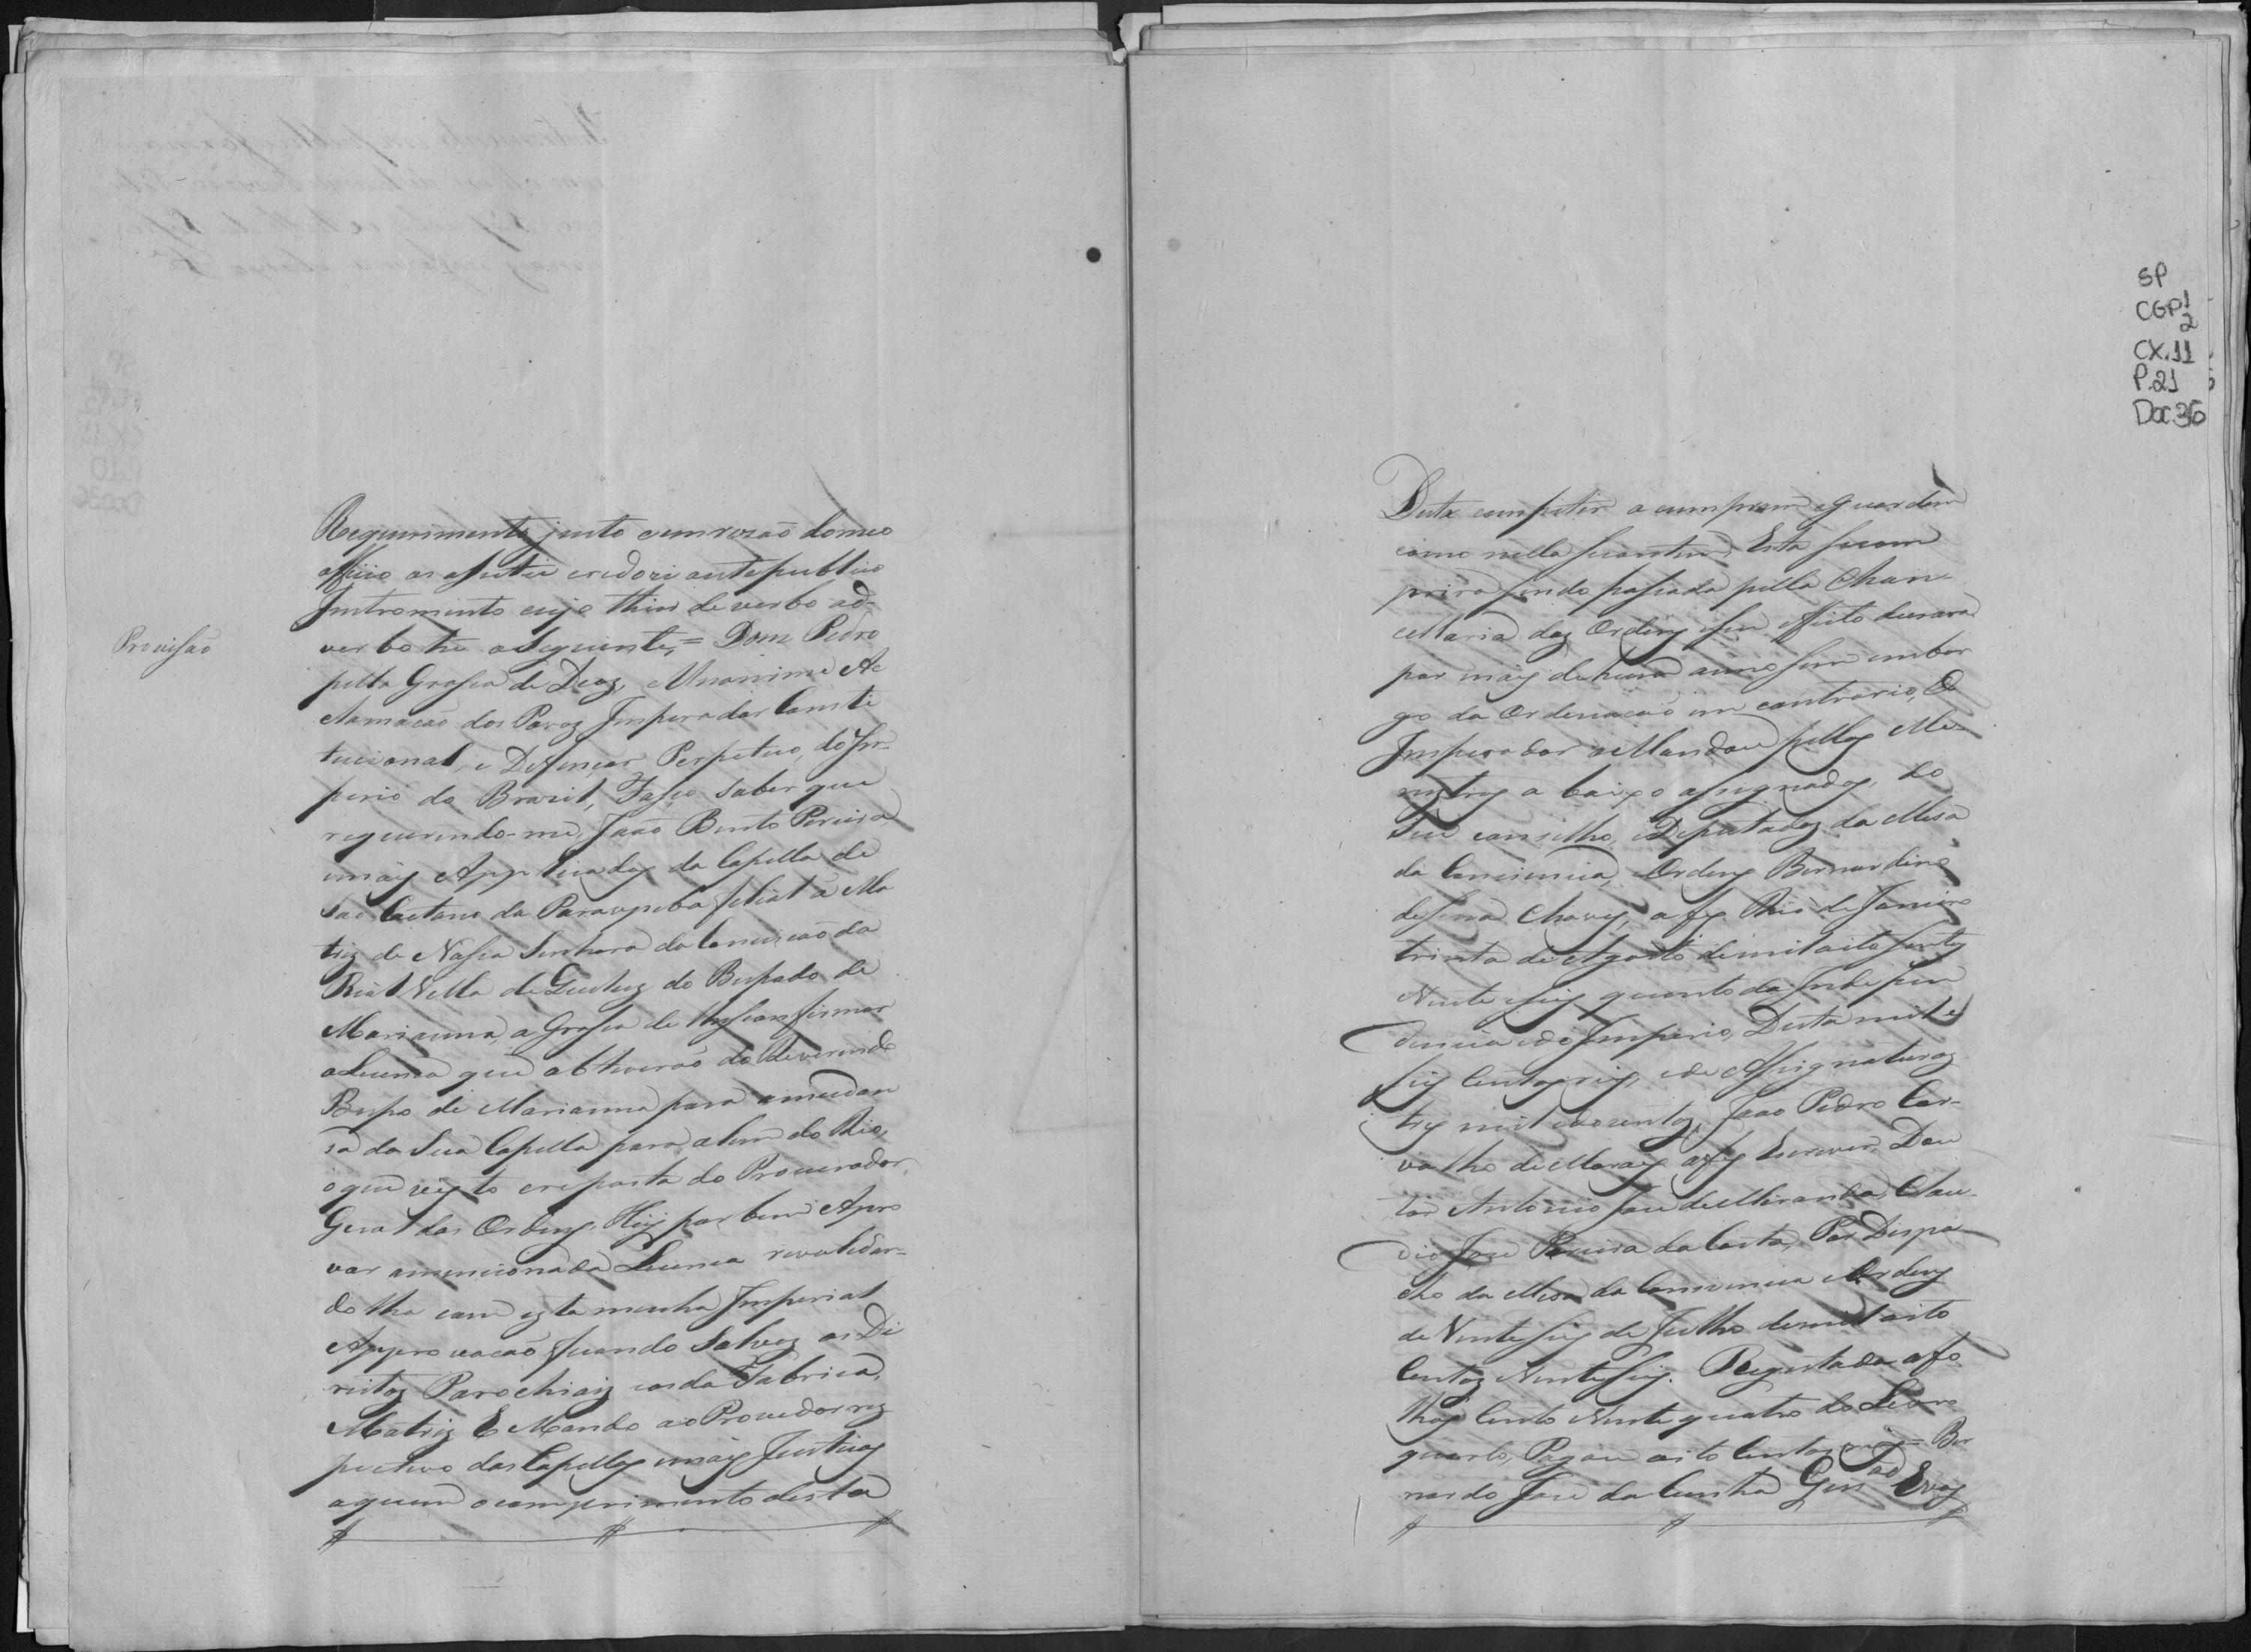 Requerimento justo em rozão do meo
officio as a fiz e credori ante publico
Instromento cujo thior de verbo ad-
verbo he o Seguinte, = Dom Pedro
Provisão
pella Grassa de Deoz, e Unanime Ac
clamacaõ dos Povoz Imperador Consti
tucional, e Defençor Perpetuo, do Im-
perio do Brazil, Fasso saber que
requerendo-me, Joaõ Bento Pereira
e maiz Applicadoz da Capella de
Saõ Caetano da Paraupeba filial á Ma
triz de Nossa Senhora da Conceicaõ da
Real Villa de Queluz do Bispado de
Marianna, a Grassa de lhes confirmar
a Licença que obtiveraõ do Reverendo
Bispo de Marianna para amudan
sa da Sua Capella para alem do Rio,
o que visto e resposta do Procurador
Geral das Ordenz. Hey por bem Apro
var amencionada Licença revalidan-
do lha com ezta minha Imperial
Approvacaõ ficando Salvoz os Di
reitoz Parochiaiz e os da Fabrica,
Matriz E Mando ao Provedor rez
pectivo das Capellaz e maiz Justiçaz
aquem o comprimento desta
Desta competir a cumpram e guardem
como nella se contem Esta se cum
prirá sendo passada pella Chan-
cellaria daz Ordenz e seu effeito durará
por maiz de hum anno sem embar
go da Ordenacaõ em contrario, O
Imperador o Mandou pelloz Me
nistroz a baixo assignadoz, do
Seu conselho, e Deputadoz da Mesa
da Conciencia, e Ordenz Bernardino
de Sena Chavez, a fez Rio de Janeiro
trinta de Agosto de mil oito sentoz
Vinte seiz quinto da Indepen
dencia e do Imperio, Desta mil e
seiz Centoz reiz, e de Assignaturaz
trez mil e dozentoz, Joaõ Pedro Car-
valho de Moraez afez Escrever, Dou
tor Antonio Jose de Miranda, Clau-
dio Jose Pereira da Costa, Por Despa
cho da Mesa da Conciencia e Ordenz
de Vinte seiz de Julho de mil oito
Centoz Vinte seiz. Regestada afo
lhaz Cento Vinte quatro do Livro
quarto, Pagou oito Centoz reiz = Ber
nardo Jose da Cunha Gus
SP
CGP1
2
CX.11
P.21
Doc 36